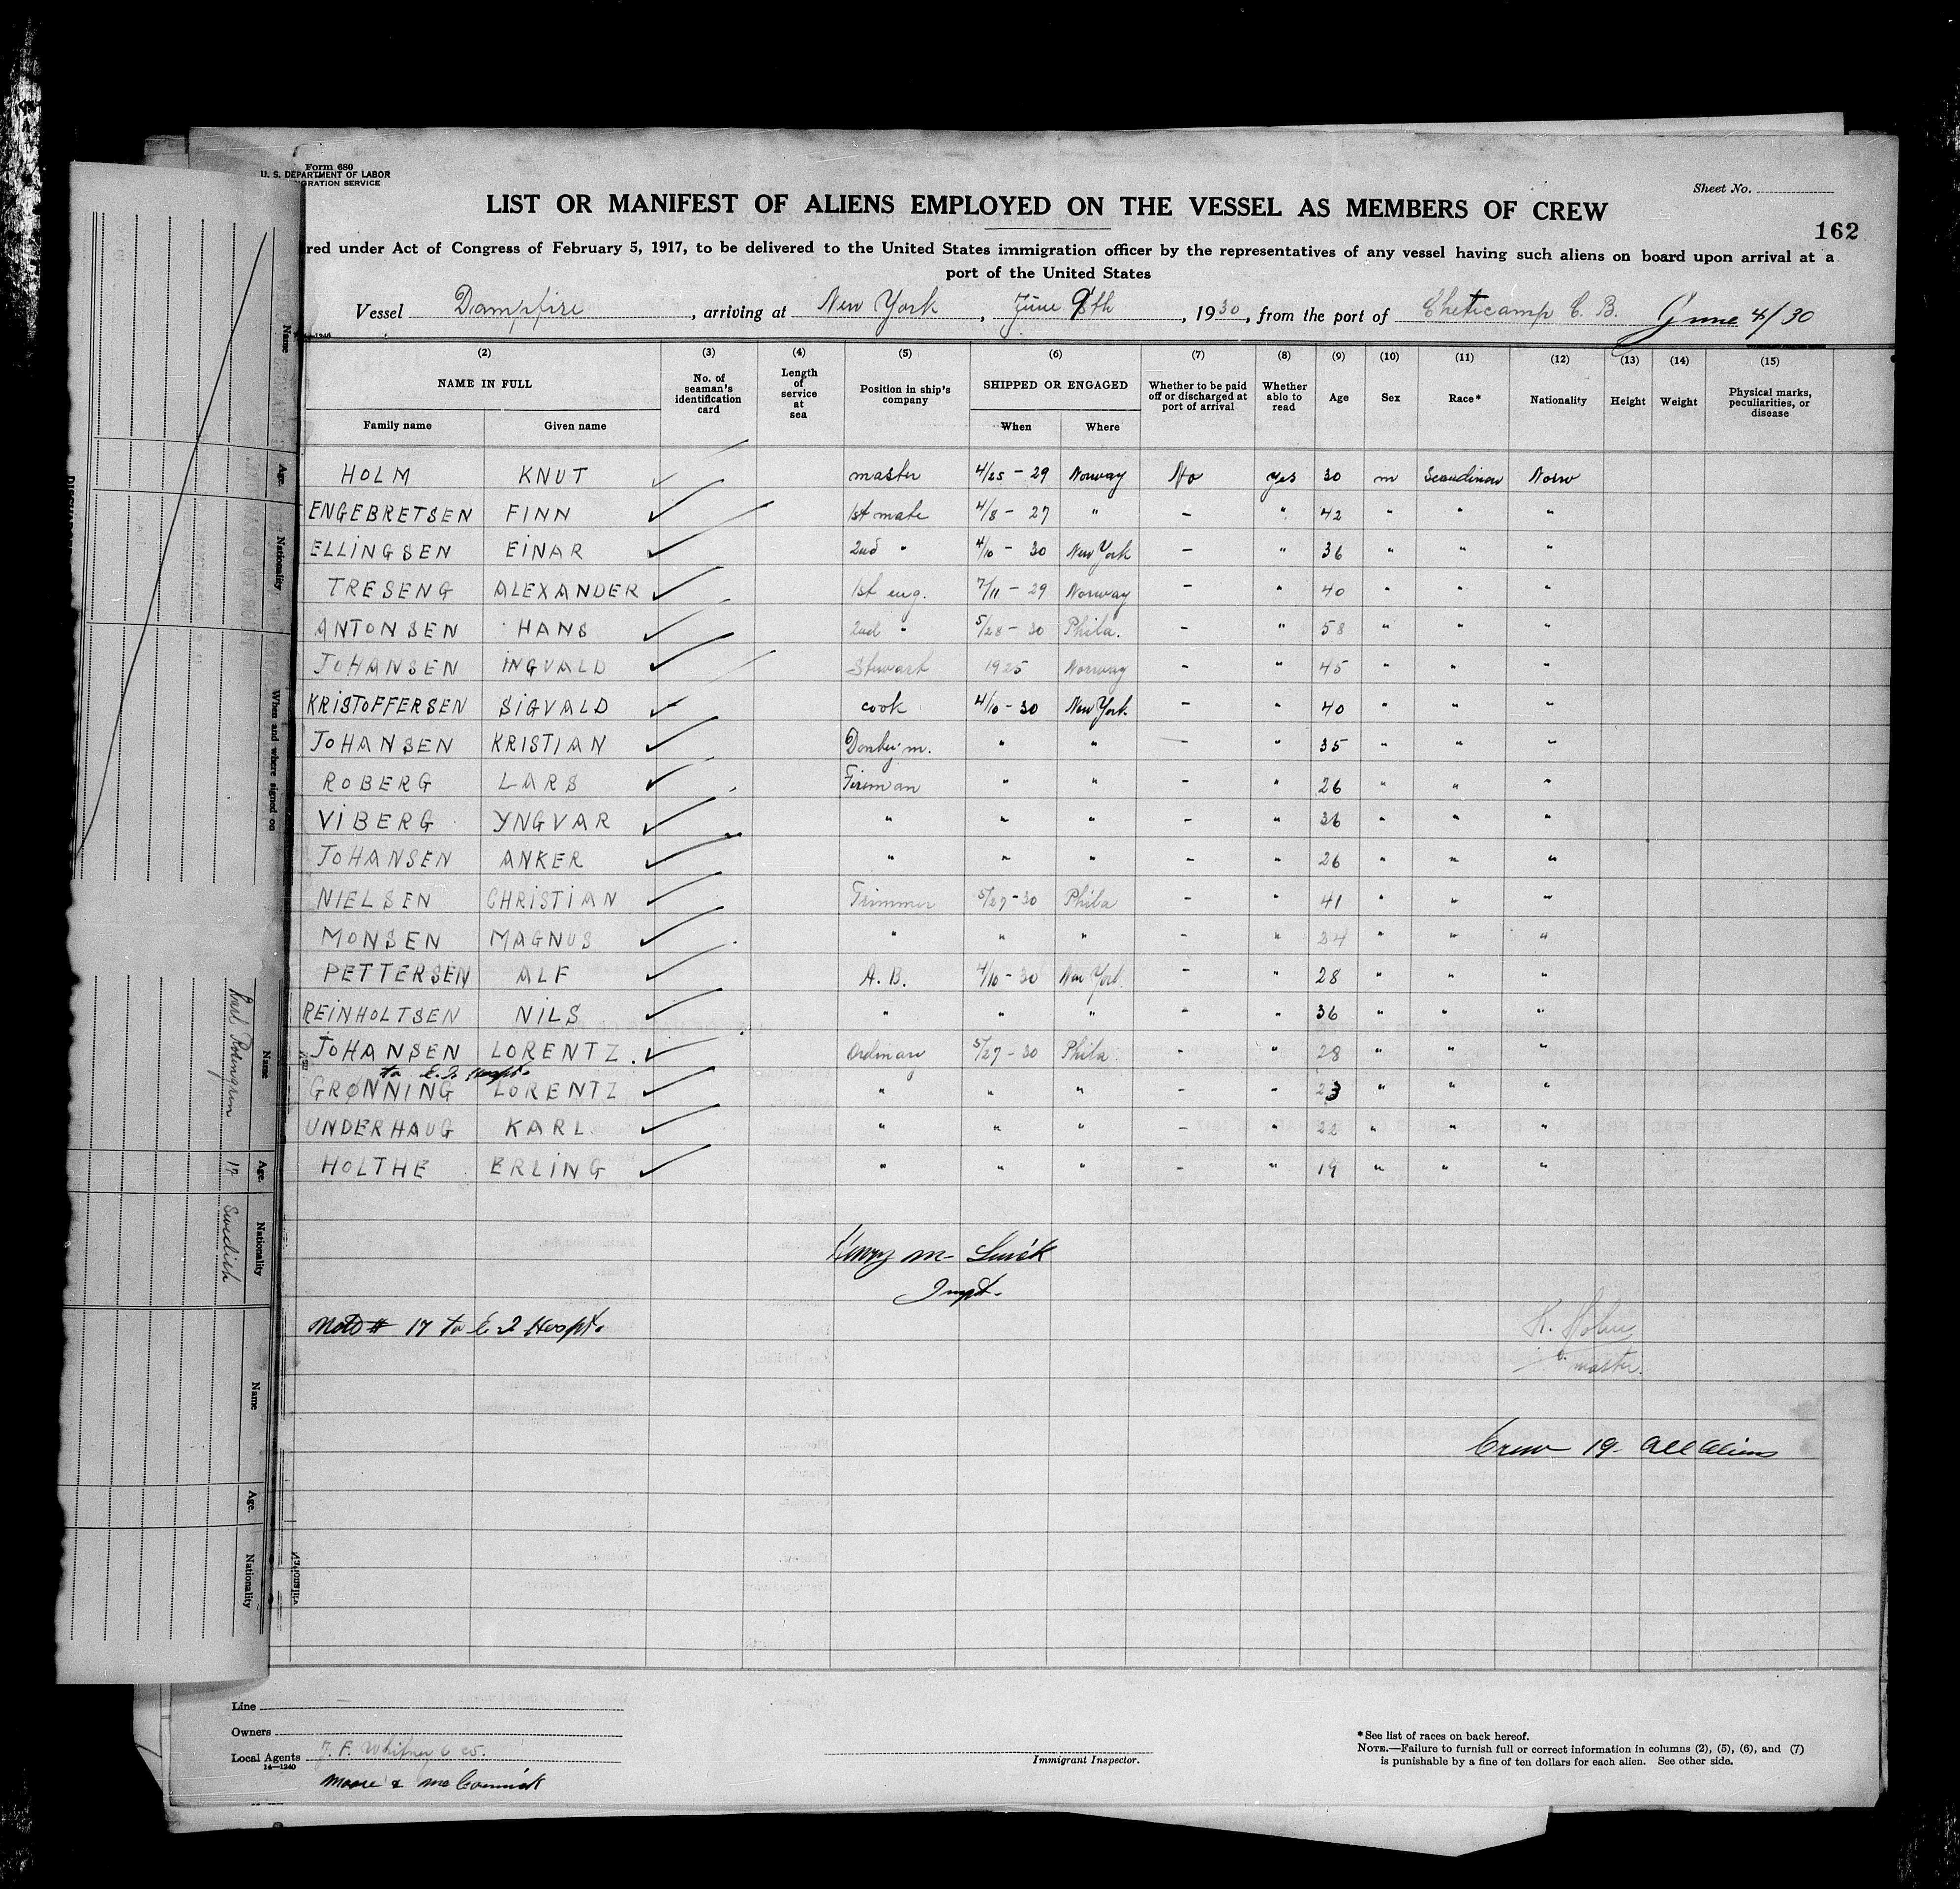 Form 680
U. S. DEPARTMENT OF LABOR
GRATION SERVICE
Sheet No.
LIST OR MANIFEST OF ALIENS EMPLOYED ON THE VESSEL AS MEMBERS OF CREW
162
red under Act of Congress of February 5, 1917, to be delivered to the United States immigration officer by the representatives of any vessel having such aliens on board upon arrival at a
port of the United States
Vessel Dampfire, arriving at New York, June 8th, 1930, from the port of Cheticamp C. B. June 4/30
(2) (3) (4) (5) (6) (7) (8) (9) (10) (11) (12) (13) (14) (15)
NAME IN FULL No. of seaman's identification card Length of service at sea Position in ship's company SHIPPED OR ENGAGED Whether to be paid off or discharged at port of arrival Whether able to read Age Sex Race* Nationality Height Weight Physical marks, peculiarities, or disease
Family name Given name When Where
HOLM KNUT master 4/25 - 29 Norway No yes 30 m Scandinav Norw
ENGEBRETSEN FINN 1st mate 4/8 - 27 " - " 42 " " "
ELLINGSEN EINAR 2nd " 4/10 - 30 New York - " 36 " " "
TRESENG ALEXANDER 1st eng. 7/11 - 29 Norway - " 40 " " "
ANTONSEN HANS 2nd " 5/28 - 30 Phila. - " 58 " " "
JOHANSEN INGVALD Stewart 1925 Norway - " 45 " " "
KRISTOFFERSEN SIGVALD cook 4/10 - 30 New York - " 40 " " "
JOHANSEN KRISTIAN Donkeym. " " - " 35 " " "
ROBERG LARS Fireman " " - " 26 " " "
VIBERG YNGVAR " " " - " 36 " " "
JOHANSEN ANKER " " " - " 26 " " "
NIELSEN CHRISTIAN Trimmer 5/27 - 30 Phila - " 41 " " "
MONSEN MAGNUS " " " - " 24 " " "
PETTERSEN ALF A. B. 4/10 - 30 New York - " 28 " " "
REINHOLTSEN NILS " " " - " 36 " " "
JOHANSEN LORENTZ. Ordinary 5/27 - 30 Phila. - " 28 " " "
to E. I. Hospt.
GRØNNING LORENTZ " " " - " 23 " " "
UNDERHAUG KARL " " " - " 22 " " "
HOLTHE ERLING " " " - " 19 " " "
Henry M-
Inspt.
Note # 17 to E I Hospt.
K. Holm
master.
Crew 19 - all aliens
Line
Owners
Local Agents J. F. Whitney & co.
14—1240
Moore & McCormick
Immigrant Inspector.
*See list of races on back hereof.
NOTE.—Failure to furnish full or correct information in columns (2), (5), (6), and (7)
is punishable by a fine of ten dollars for each alien. See other side.
Name
Age.
Nationality
When and where signed on
Name
Age.
Nationality
Karl Rosengren 17 Swedish
Name
Age.
Nationality